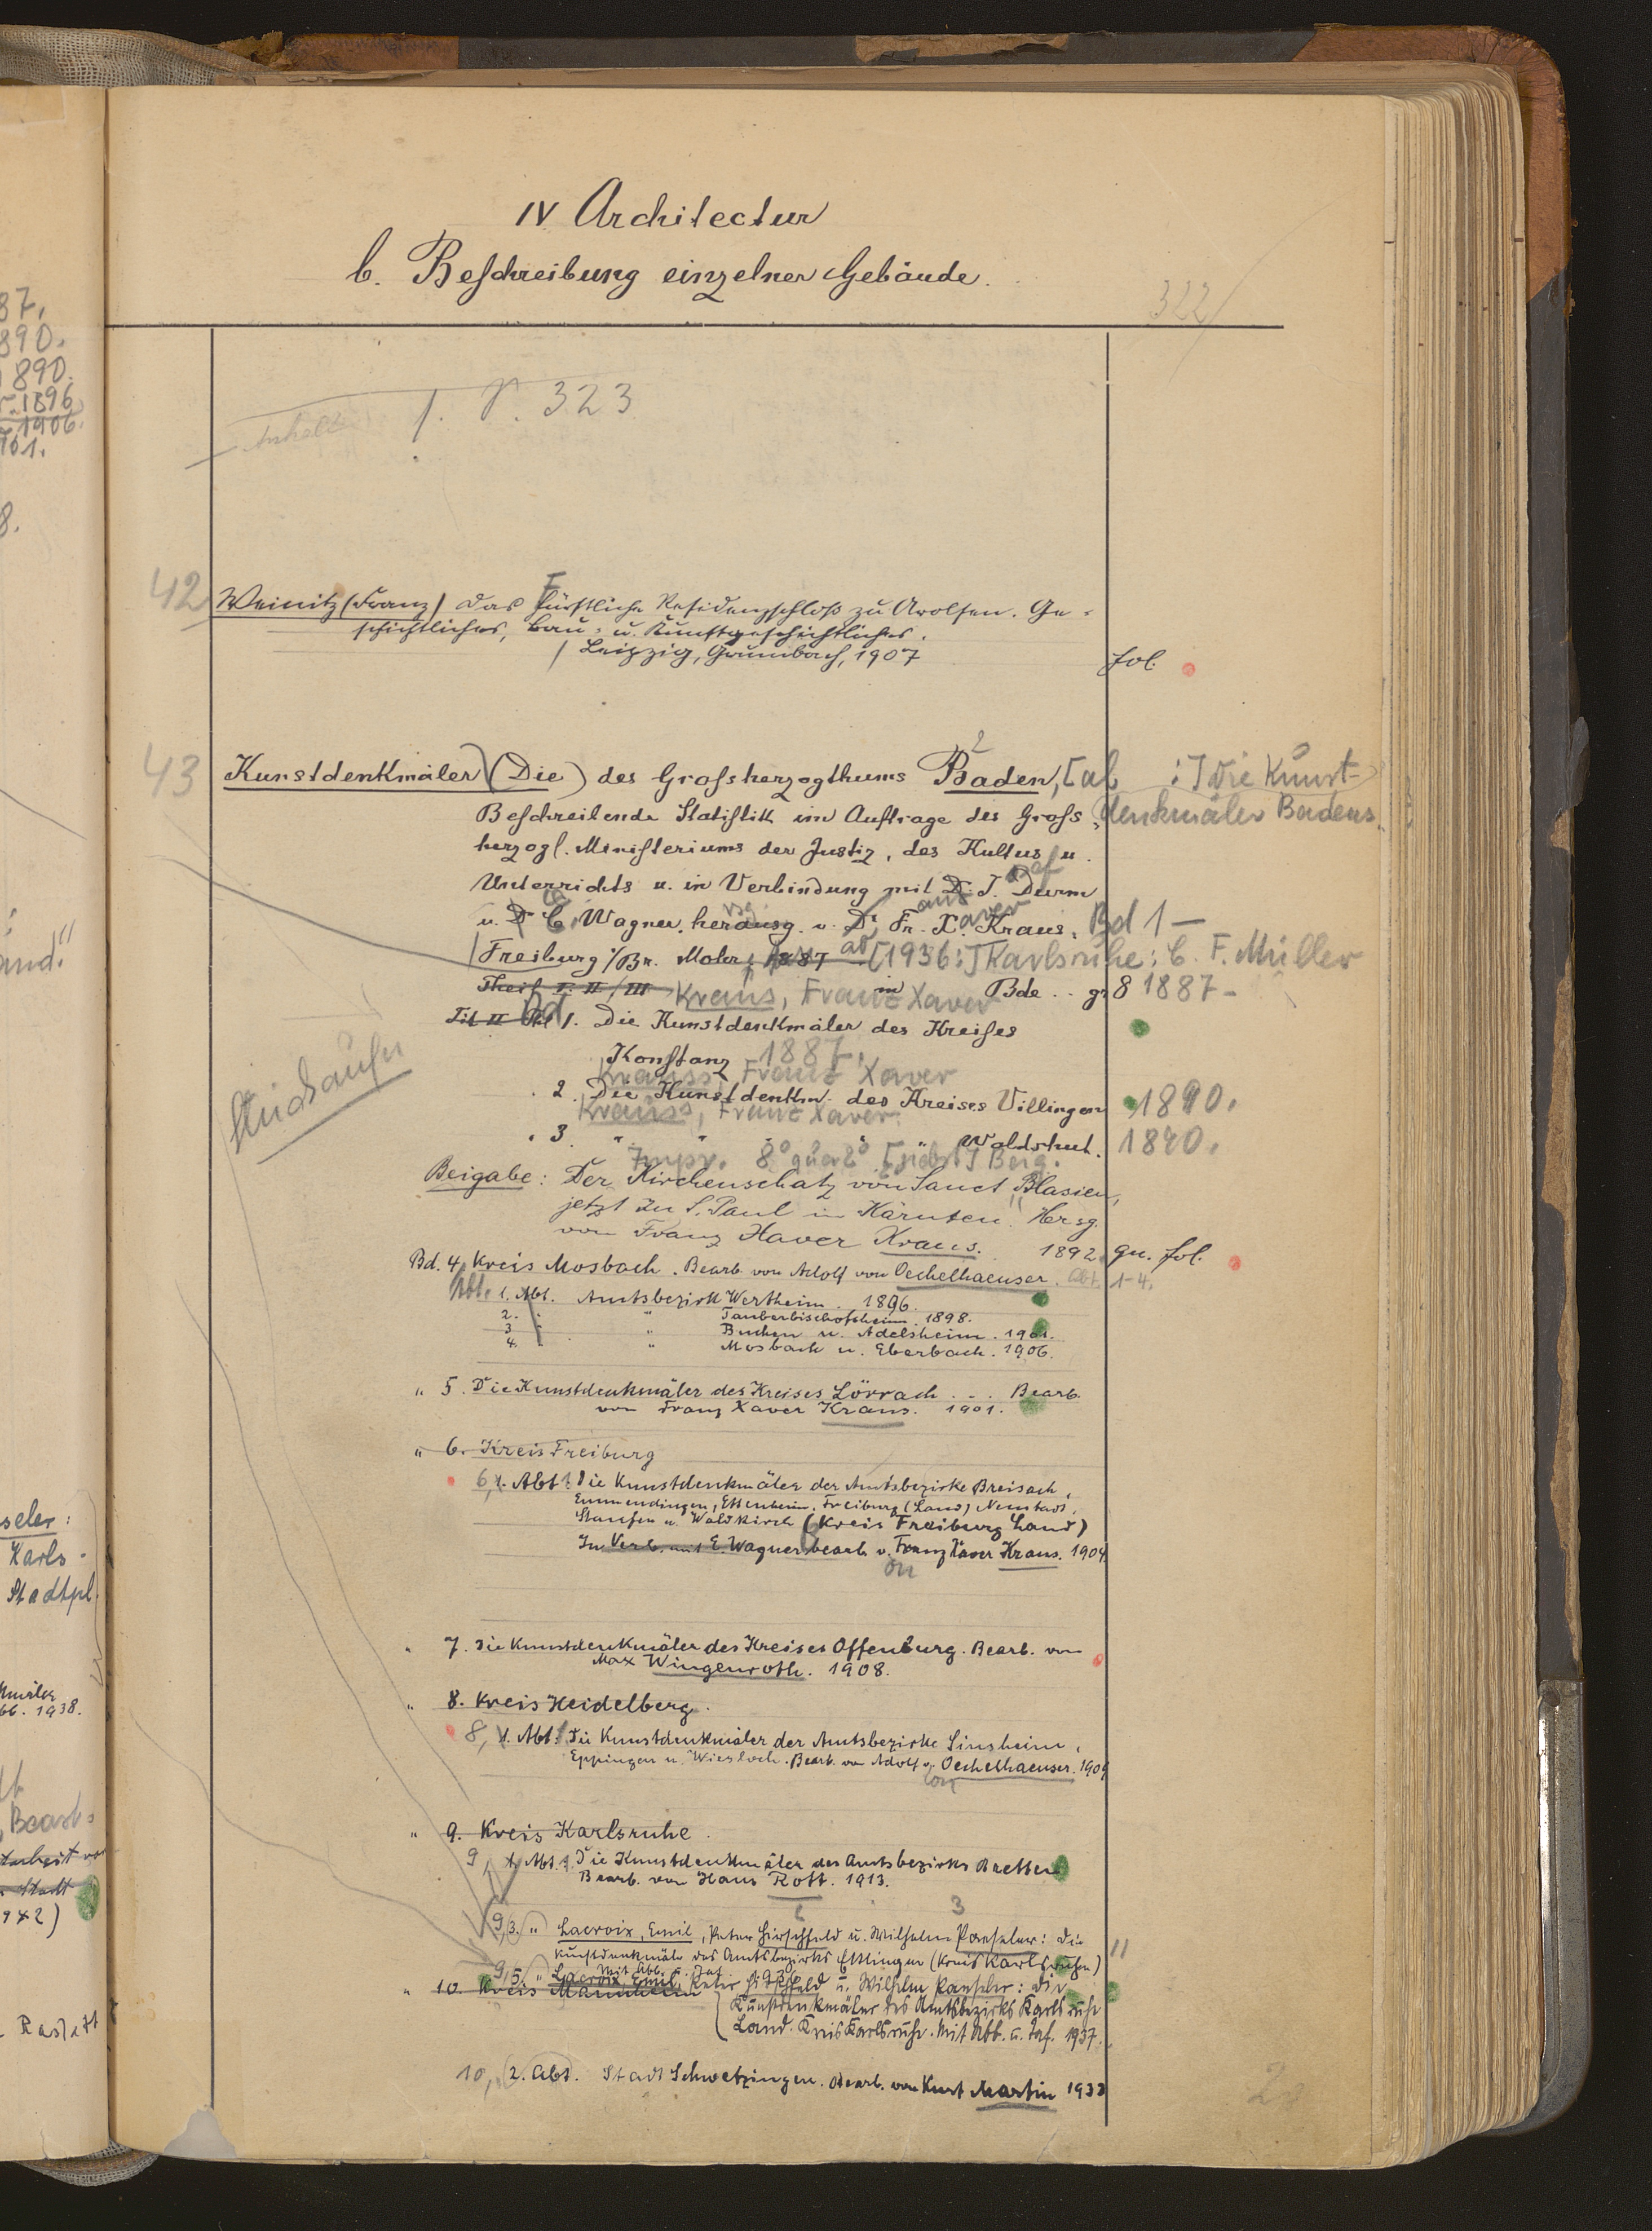 IV Architectur
b. Beschreibung einzelner Gebäude.
322
Inhalt
S. 323
42 Weinitz (Franz) Das Fürstliche Residenzschloß zu Arolsen. Ge-
schichtliches, Bau- u. Kunstgeschichtliches.
Leipzig, Grumbach, 1907 fol.
43 Kunstdenkmäler (Die) des Grossherzogthums Baden, [ab : ] Die Kunst-
denkmäler Badens.
Beschreibende Statistik im Auftrage des Gross-
herzogl. Ministeriums der Justiz, des Kultus u.
Unterrichts u. in Verbindung mit Dr. J. Durm
u. Dr E. Wagner, herausg. v. Dr Fr. X. Kraus. Bd 1 —
Freiburg i/Br. Mohr, 1887 ab [1936:] Karlsruhe: C. F. Müller
Theil I. II/III Kraus, Franz Xaver in Bde .. gr 8 1887 –
Bd 1. Die Kunstdenkmäler des Kreises
Konstanz 1887.
Krauss, Franz Xaver
2. Die Kunstdenkm. des Kreises Villingen 1890.
Krauss, Franz Xaver.
3. " " " " Waldshut. 1890.
Beigabe: Der Kirchenschatz von Sanct Blasien,
jetzt zu S. Paul in Kärnten. Hersg.
von Franz Xaver Kraus. 1892. qu. fol.
Bd. 4. Kreis Mosbach. Bearb. von Adolf von Oechelhaeuser. Abt. 1-4.
Abt. 1. Abt. Amtsbezirk Wertheim. 1896.
2. " " Tauberbischofsheim. 1898.
3 " " Buchen u. Adelsheim. 1901.
4. " " Mosbach u. Eberbach. 1906.
" 5. Die Kunstdenkmäler des Kreises Lörrach . - . Bearb.
von Franz Xaver Kraus. 1901.
" 6. Kreis Freiburg
6, 1. Abt: Die Kunstdenkmäler der Amtsbezirke Breisach,
Emmendingen, Ettenheim, Freiburg (Land) Neustadt,
Staufen u. Waldkirch (Kreis Freiburg Land)
In Verb. mit E. Wagner bearb. v. Franz Xaver Kraus. 1904.
on
" 7. Die Kunstdenkmäler des Kreises Offenburg. Bearb. von
Max Wingenroth. 1908.
" 8. Kreis Heidelberg.
8, 1. Abt: Die Kunstdenkmäler der Amtsbezirke Sinsheim,
Eppingen u. Wiesloch. Bearb. von Adolf v. Oechelhaeuser. 1909
von
" 9. Kreis Karlsruhe.
9, 1. Abt. Die Kunstdenkmäler des Amtsbezirks Bretten
Bearb. von Hans Rott. 1913.
9, 3. " Lacroix, Emil, Peter Hirschfeld u. Wilhelm Paeseler: Die
Kunstdenkmäler des Amtsbezirks Ettlingen (Kreis Karlsruhe)
Mit Abb. u. Taf.
9, 5. " Lacroix, Emil, Peter Hirschfeld u. Wilhelm Paeseler: Die
" 10. Kreis Mannheim
Kunstdenkmäler des Amtsbezirks Karlsruhe
Land. Kreis Karlsruhe. Mit Abb. u. Taf. 1937.
10, 2. Abt. Stadt Schwetzingen. Bearb. von Kurt Martin 1933